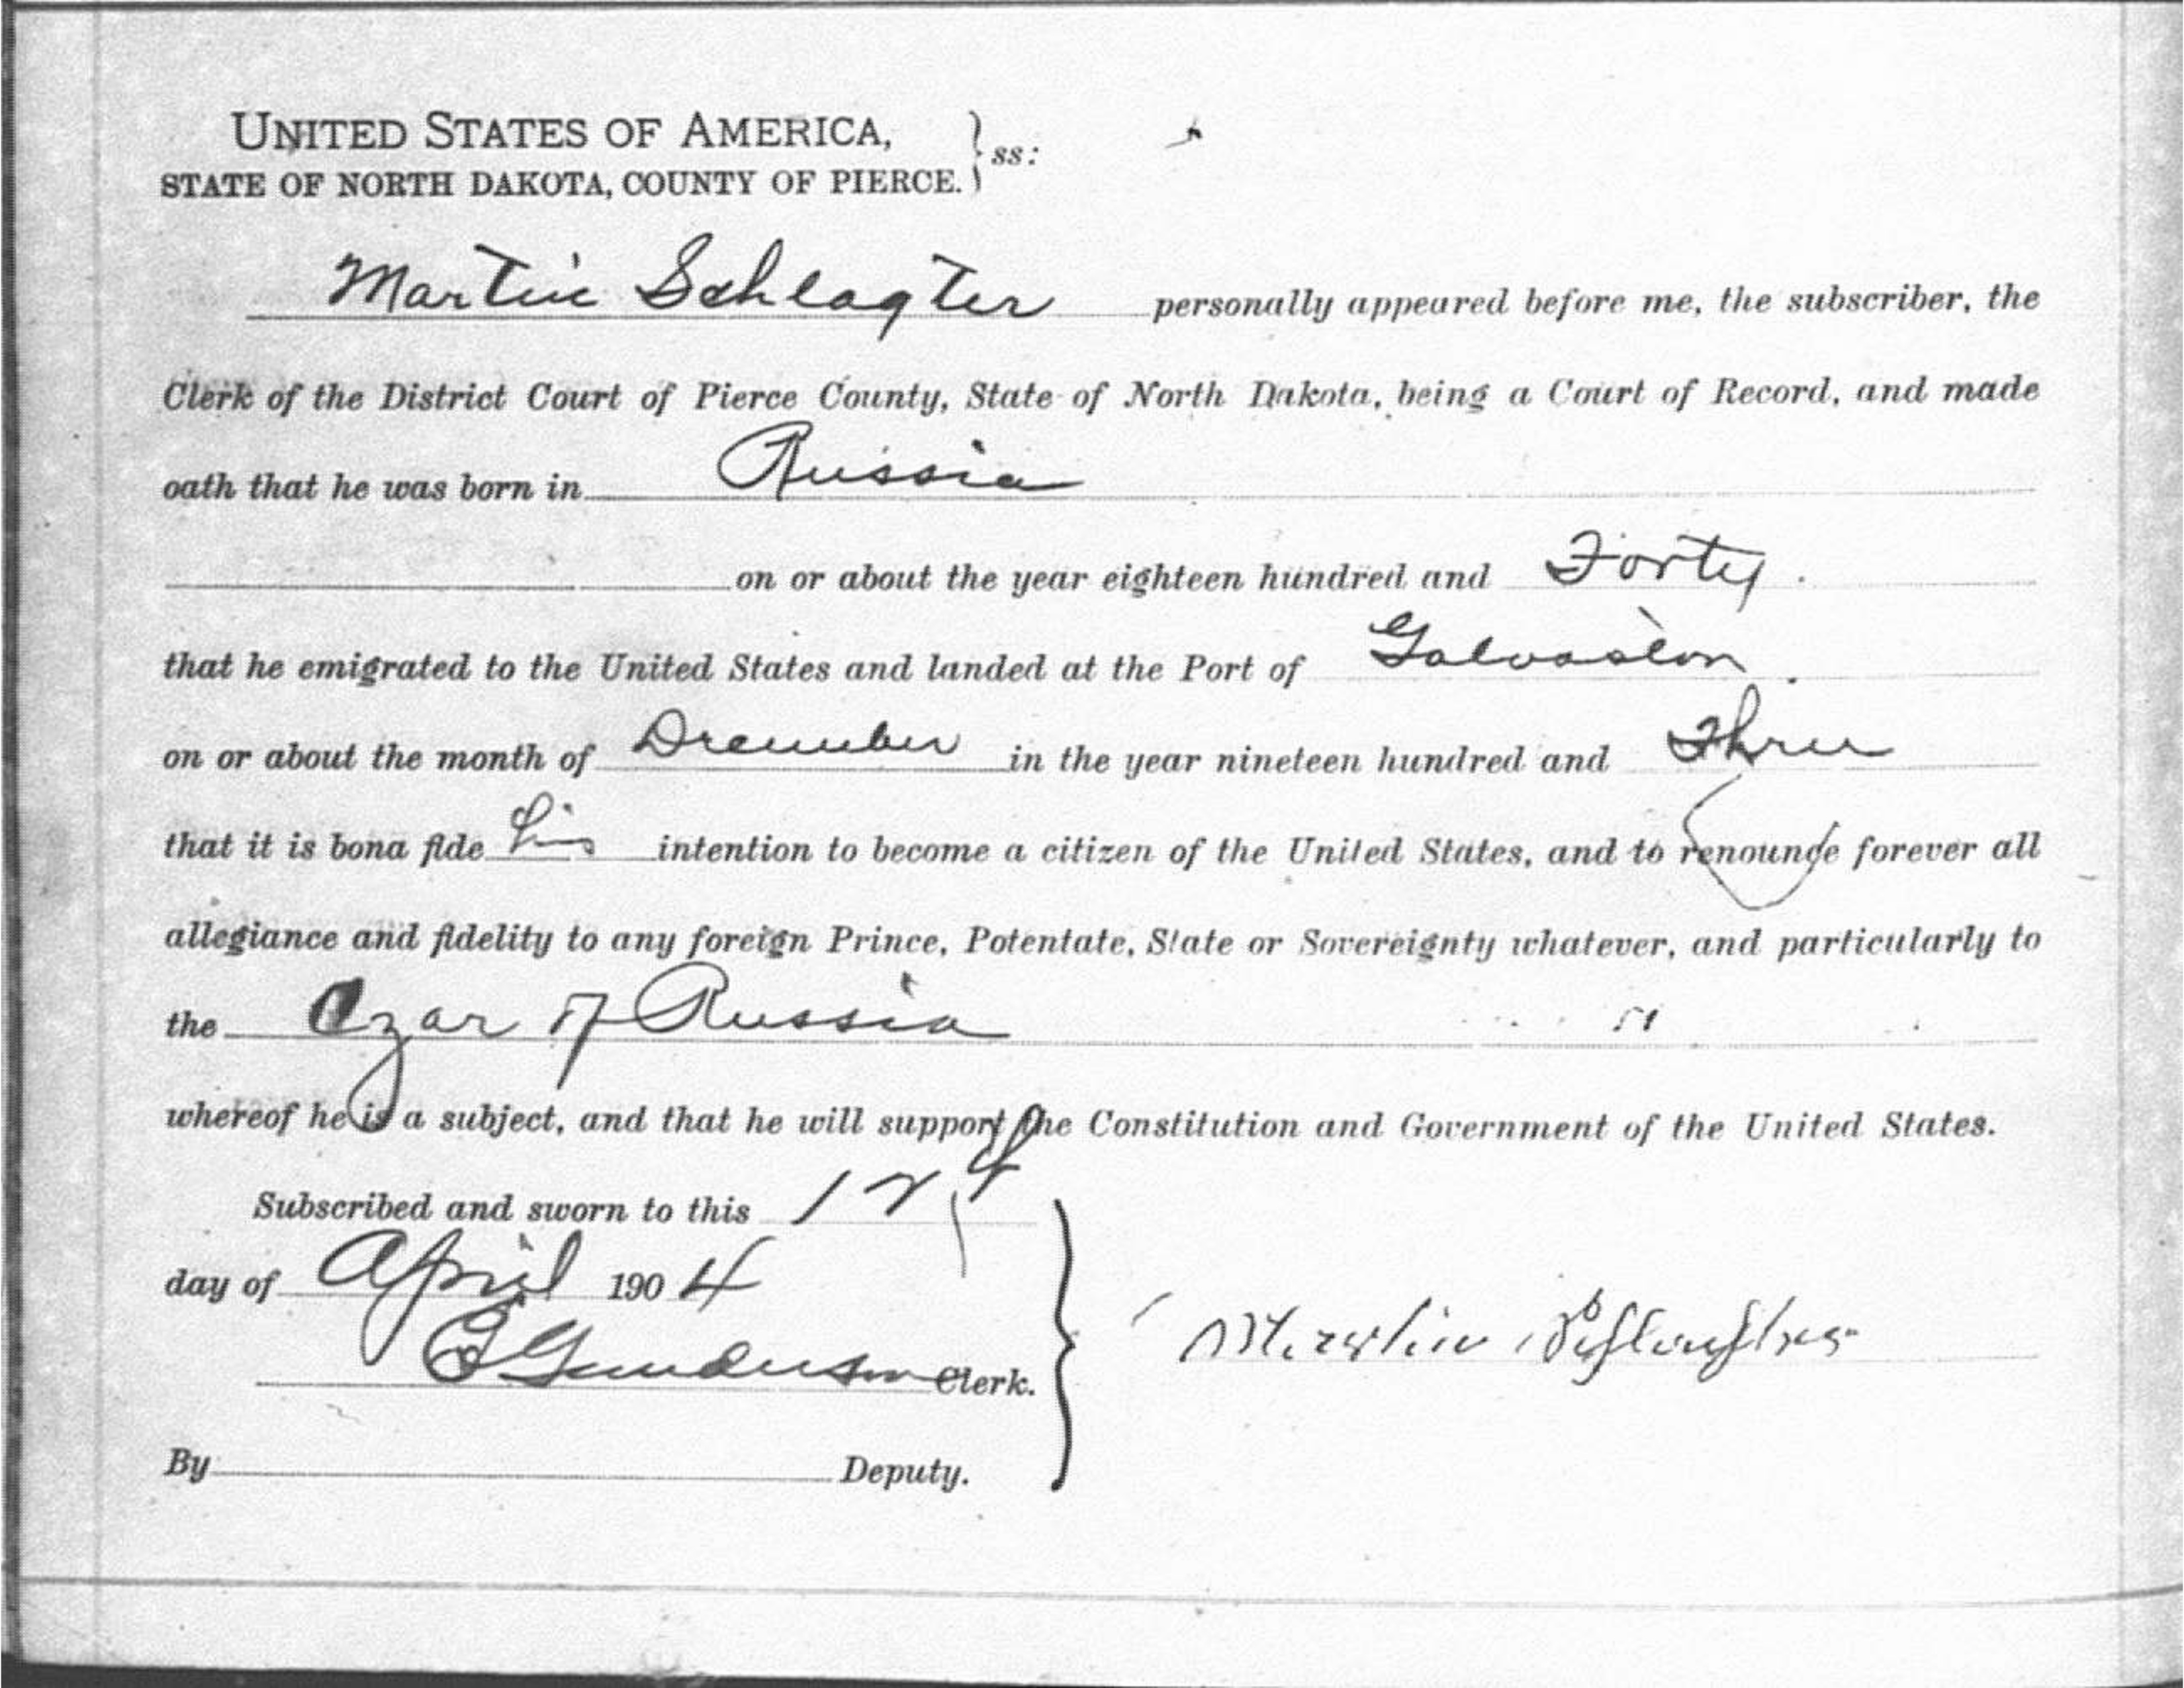 UNITED STATES OF AMERICA,
STATE OF NORTH DAKOTA, COUNTY OF PIERCE. } ss:
Martin Schlagter personally appeared before me, the subscriber, the
Clerk of the District Court of Pierce County, State of North Dakota, being a Court of Record, and made
oath that he was born in Russia
on or about the year eighteen hundred and Forty.
that he emigrated to the United States and landed at the Port of Galvaston.
on or about the month of December in the year nineteen hundred and Three
that it is bona fide his intention to become a citizen of the United States, and to renounce forever all
allegiance and fidelity to any foreign Prince, Potentate, State or Sovereignty whatever, and particularly to
the Czar of Russia
whereof he is a subject, and that he will support the Constitution and Government of the United States.
Subscribed and sworn to this 12
day of April 1904
Gunderson Clerk.
Martin
By Deputy.